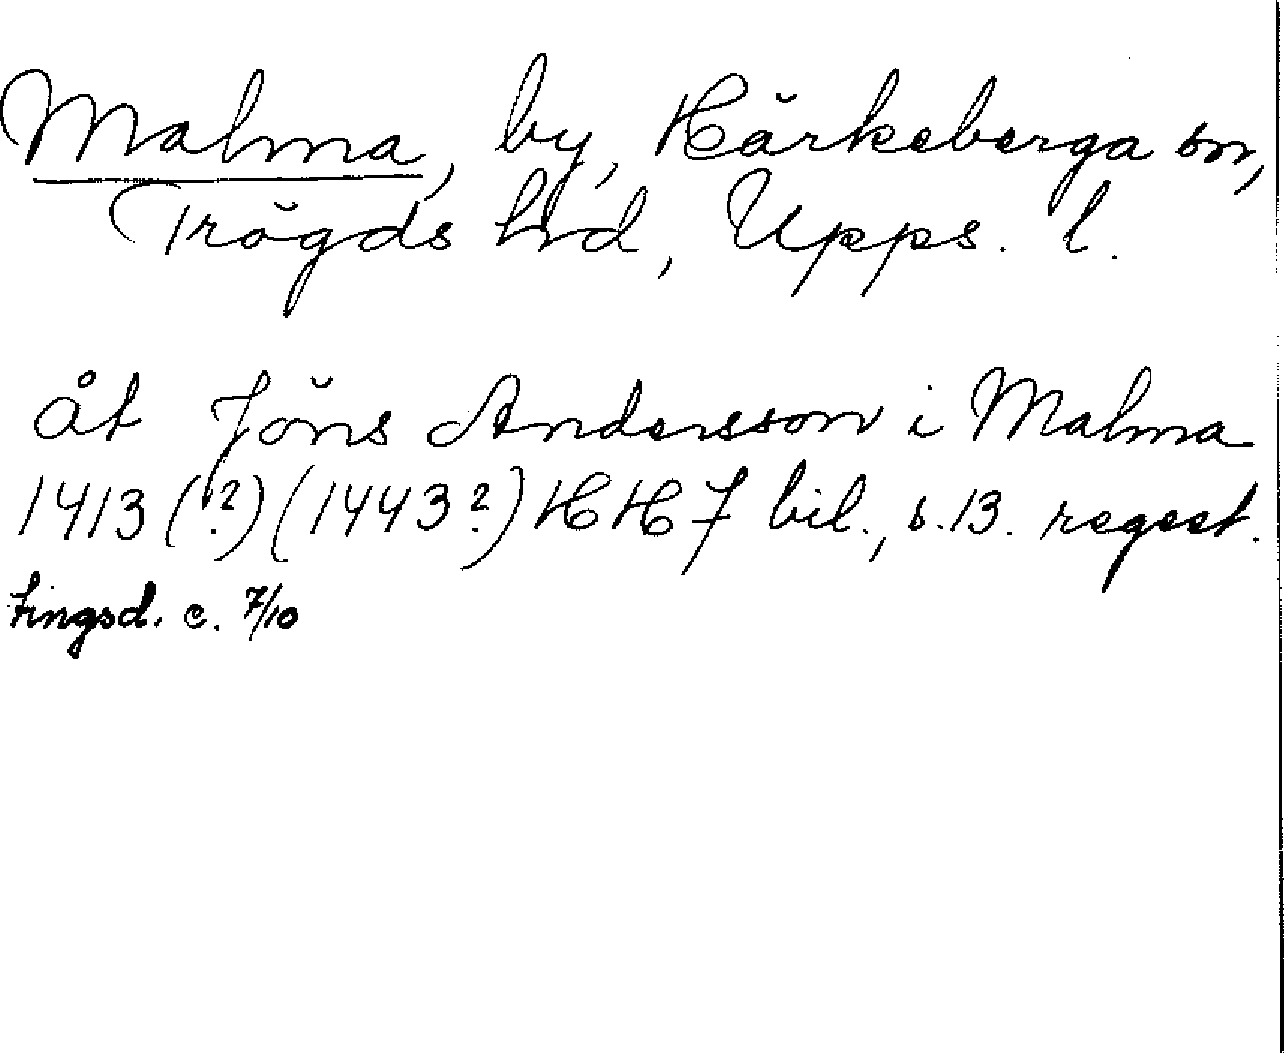 Malma, by, Härkeberga sn,
Trögds hd, Upps. l.
åt Jöns Andersson i Malma
1413 (?) (1443?) HH 7 bil., s. 13. regest.
tingsd. c. 7/10